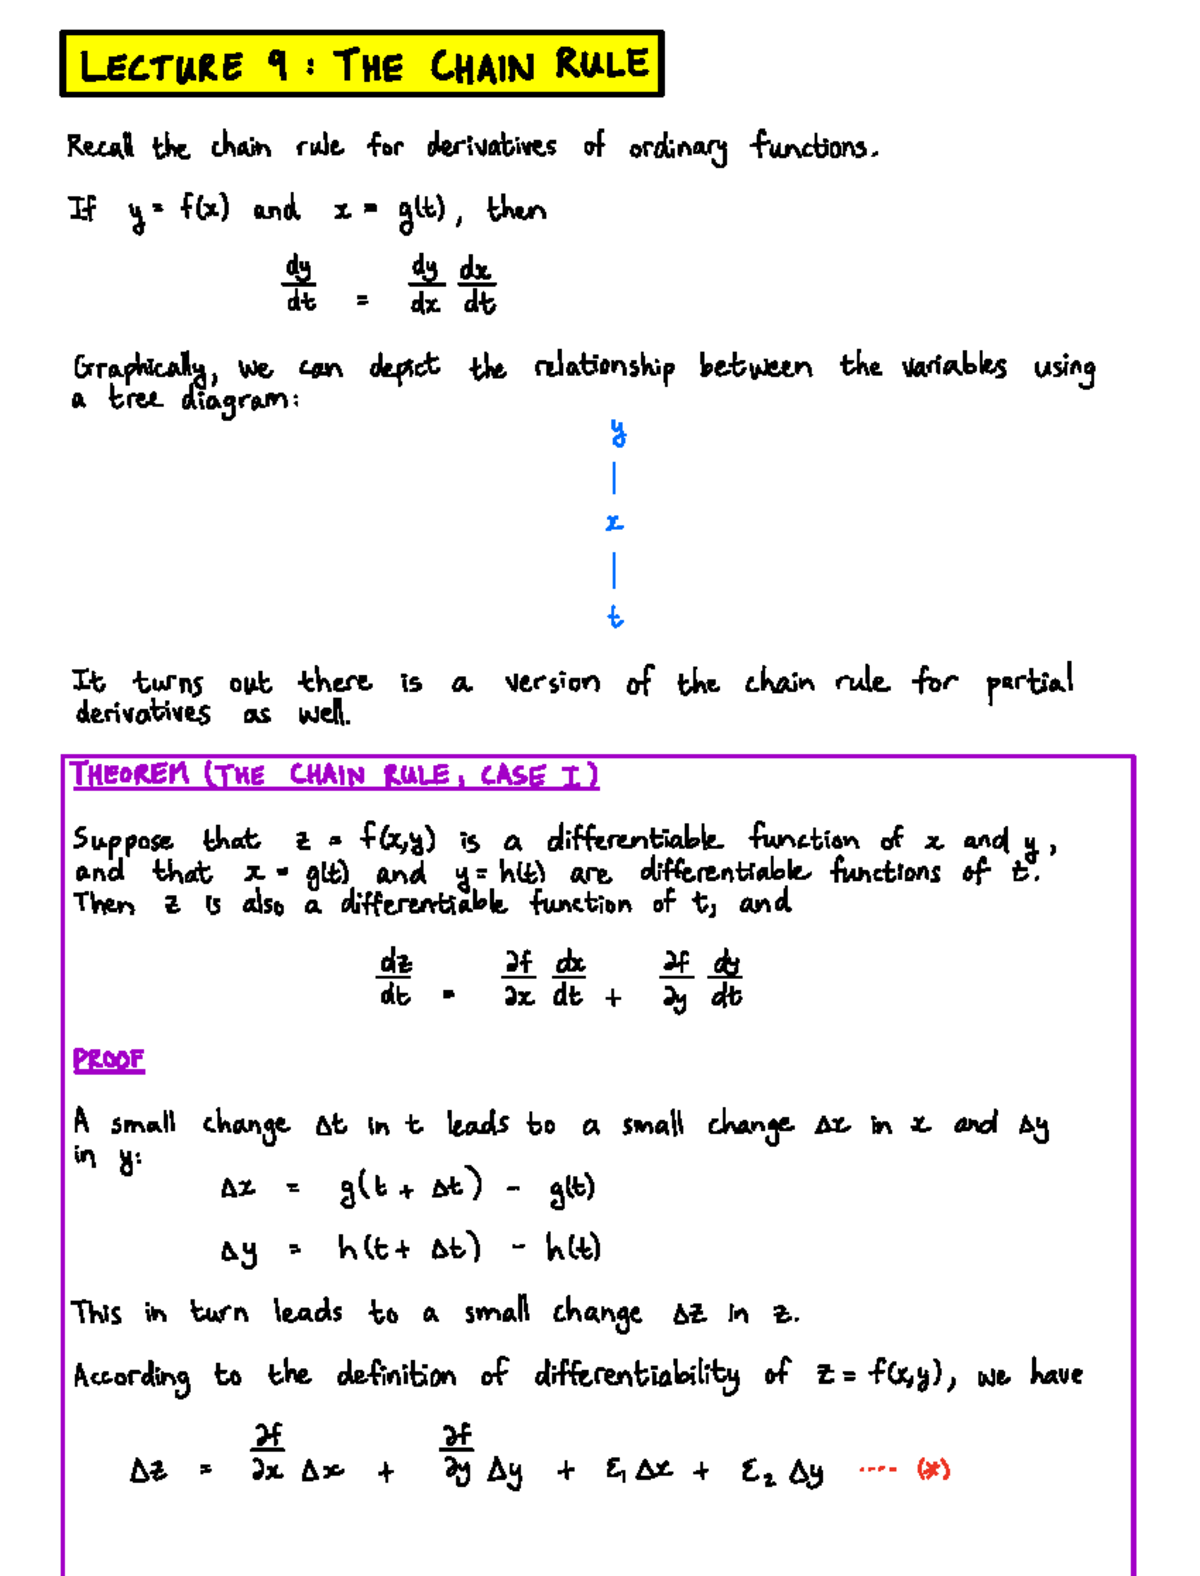 LECTURE 9 : THE CHAIN RULE
Recall the chain rule for derivatives of ordinary functions.
If y = f(x) and x = g(t), then
dy/dt = dy/dx dx/dt
Graphically, we can depict the relationship between the variables using
a tree diagram:
y
x
t
It turns out there is a version of the chain rule for partial
derivatives as well.
THEOREM (THE CHAIN RULE, CASE I)
Suppose that z = f(x,y) is a differentiable function of x and y,
and that x = g(t) and y = h(t) are differentiable functions of t.
Then z is also a differentiable function of t, and
dz/dt = ∂f/∂x dx/dt + ∂f/∂y dy/dt
PROOF
A small change Δt in t leads to a small change Δx in x and Δy
in y:
Δx = g(t + Δt) - g(t)
Δy = h(t + Δt) - h(t)
This in turn leads to a small change Δz in z.
According to the definition of differentiability of z = f(x,y), we have
Δz = ∂f/∂x Δx + ∂f/∂y Δy + ε₁ Δx + ε₂ Δy ---- (*)